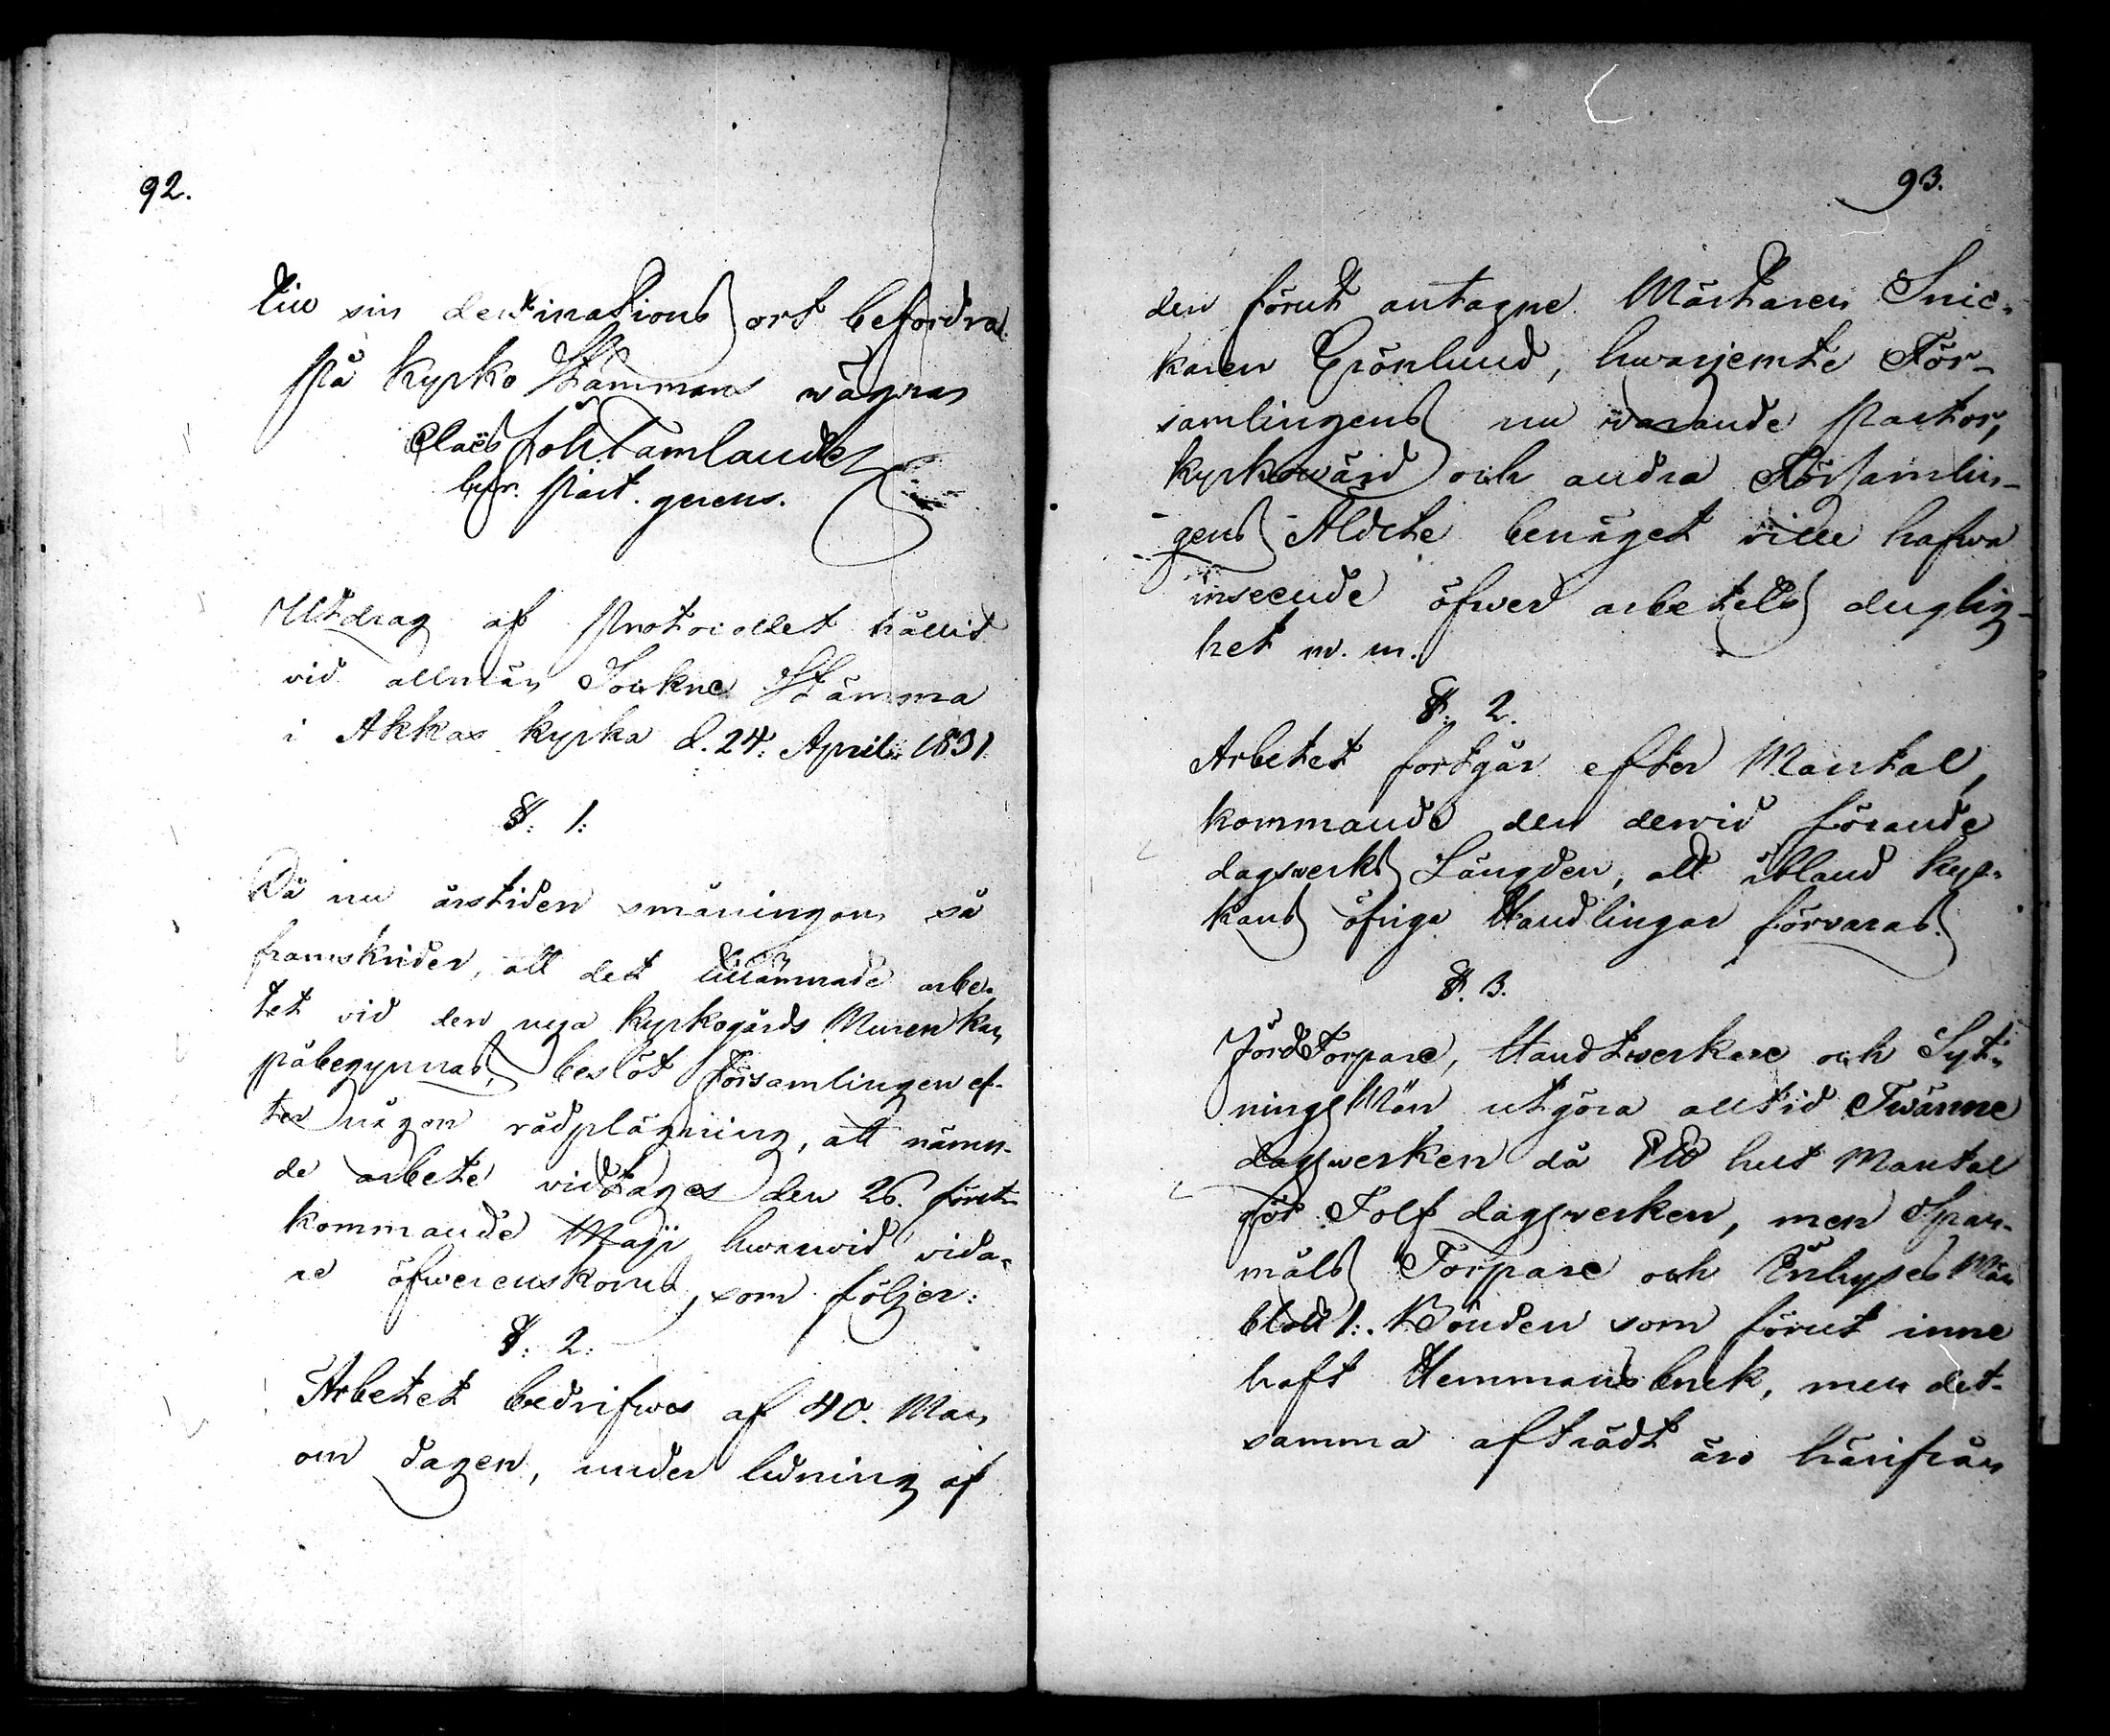 92.
till sin destinations ort befordra.
på Kyrko Stämmans wägnar
Claës Joh. Tamlander
bitr. Past. gerens.
Utdrag af Protocollet hållit
vid allmän Sockne Stämma
i Akkas kyrka d. 24. April 1831
§. 1:
Då nu årstiden småningom så
framskrider, att det tillämnade arbe-
tet vid den nya Kyrkogårds Muren kan
påbegynnas, beslöt Församlingen ef-
ter någon rådplägning, att nämn-
de arbete vidtages den 26. först-
kommande Maji hwarwid vida-
re öfwerenskoms, som följer:
§. 2:
Arbetet bedrifwes af 40. Man
om dagen, under ledning af
93.
den förut antagne Mästaren Snic-
karen Grönlund, hwarjemte För-
samlingens nu warande Pastor,
kyrkowärd och andra Församlin-
gens Äldste benäget wille hafwa
inseende öfwer arbetets duglig-
het m. m.
§. 2.
Arbetet fortgår efter Mantal,
kommande den derwid förande
dagswerks Längden, att ibland kyr-
kans öfriga Handlingar förvaras.
§. 3.
Jord Torpare, Handtwerkare och Syt-
nings Män utgöra alltid Twänne
dagswerken då Ett helt Mantal
gör Tolf dagswerken, men Span-
måls Torpare och Inhyses Män
blott 1. Bönder som förut inne
haft Hemmans bruk, men det-
samma afträdt äro härifrån